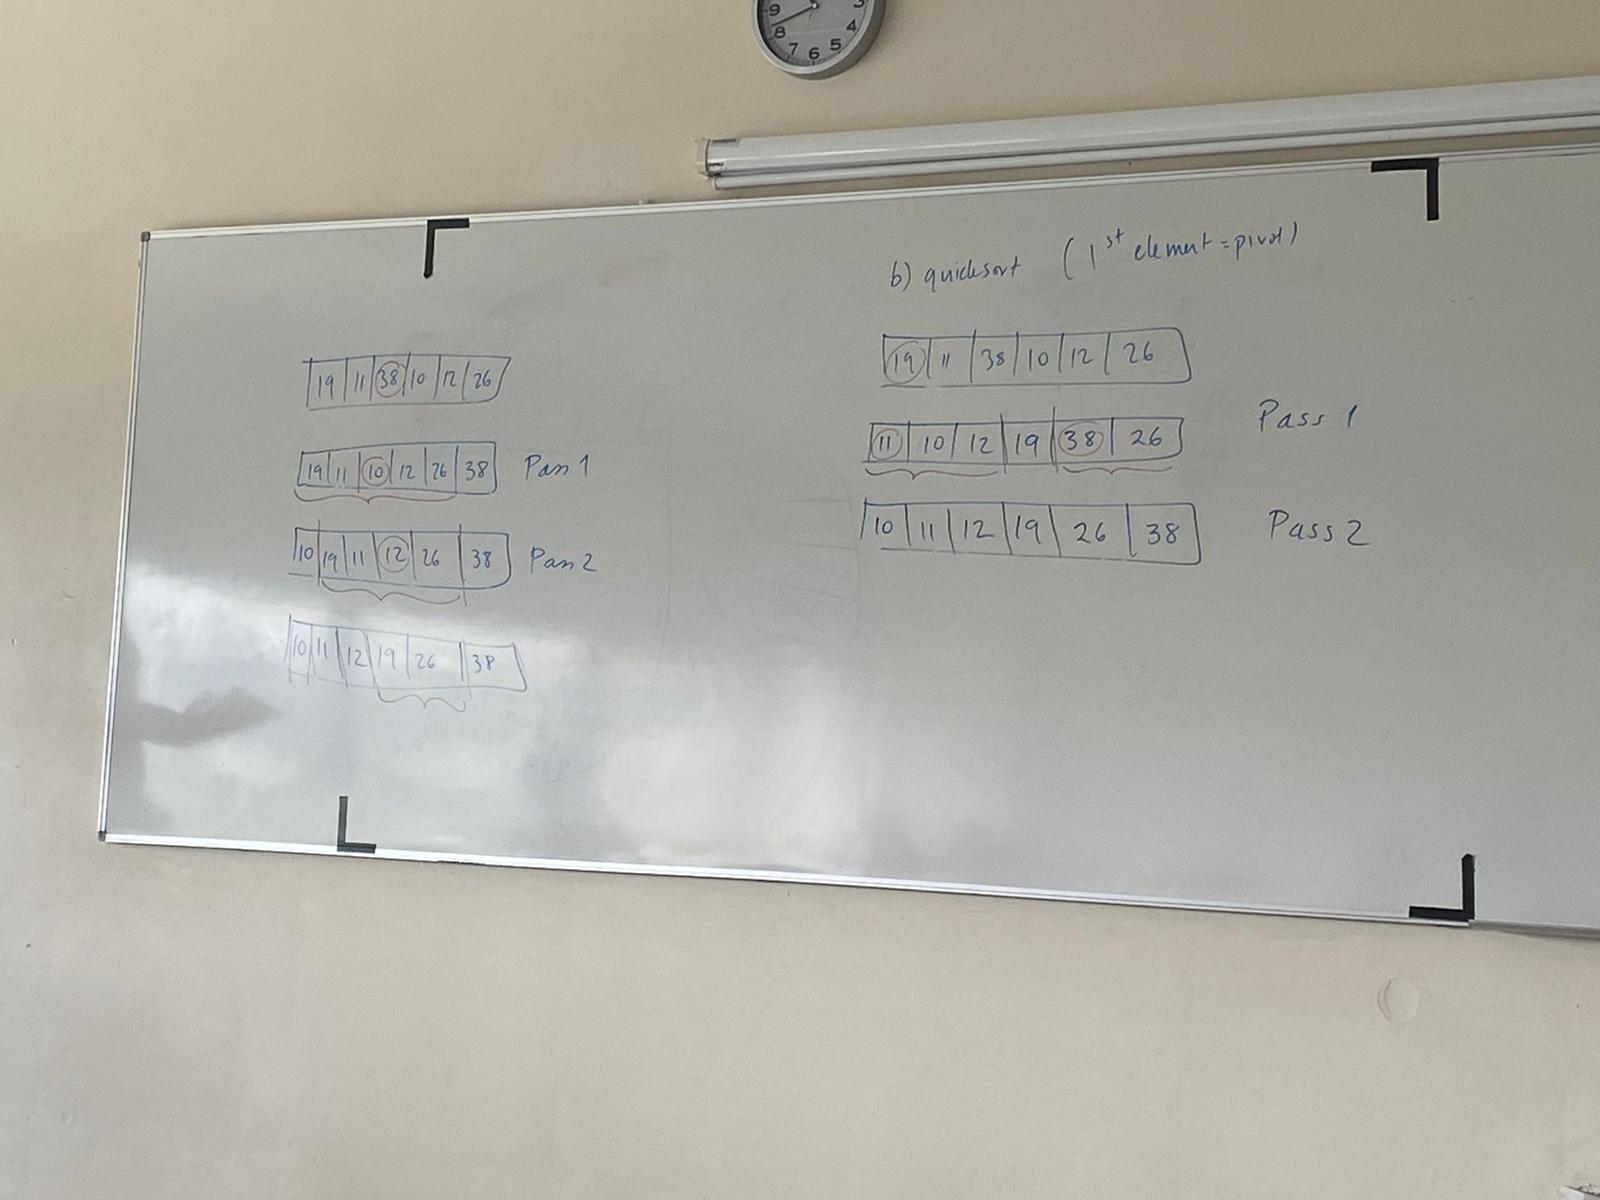 9 3
8 4
7 6 5
19 11 38 10 12 26
19 11 10 12 26 38 Pass 1
10 19 11 12 26 38 Pass 2
10 11 12 19 26 38
b) quicksort (1st element = pivot)
19 11 38 10 12 26
11 10 12 19 38 26 Pass 1
10 11 12 19 26 38 Pass 2